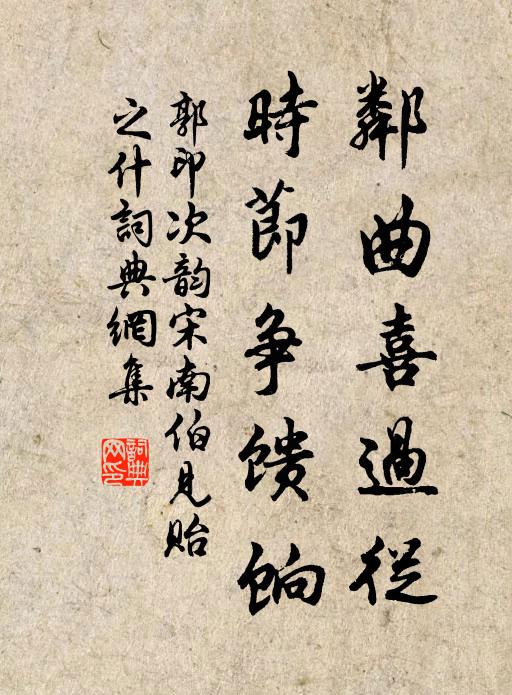 鄰曲喜過從
時節争馈餉
郭印次韵宋南伯見貽
之什詞典網集
詞典网印